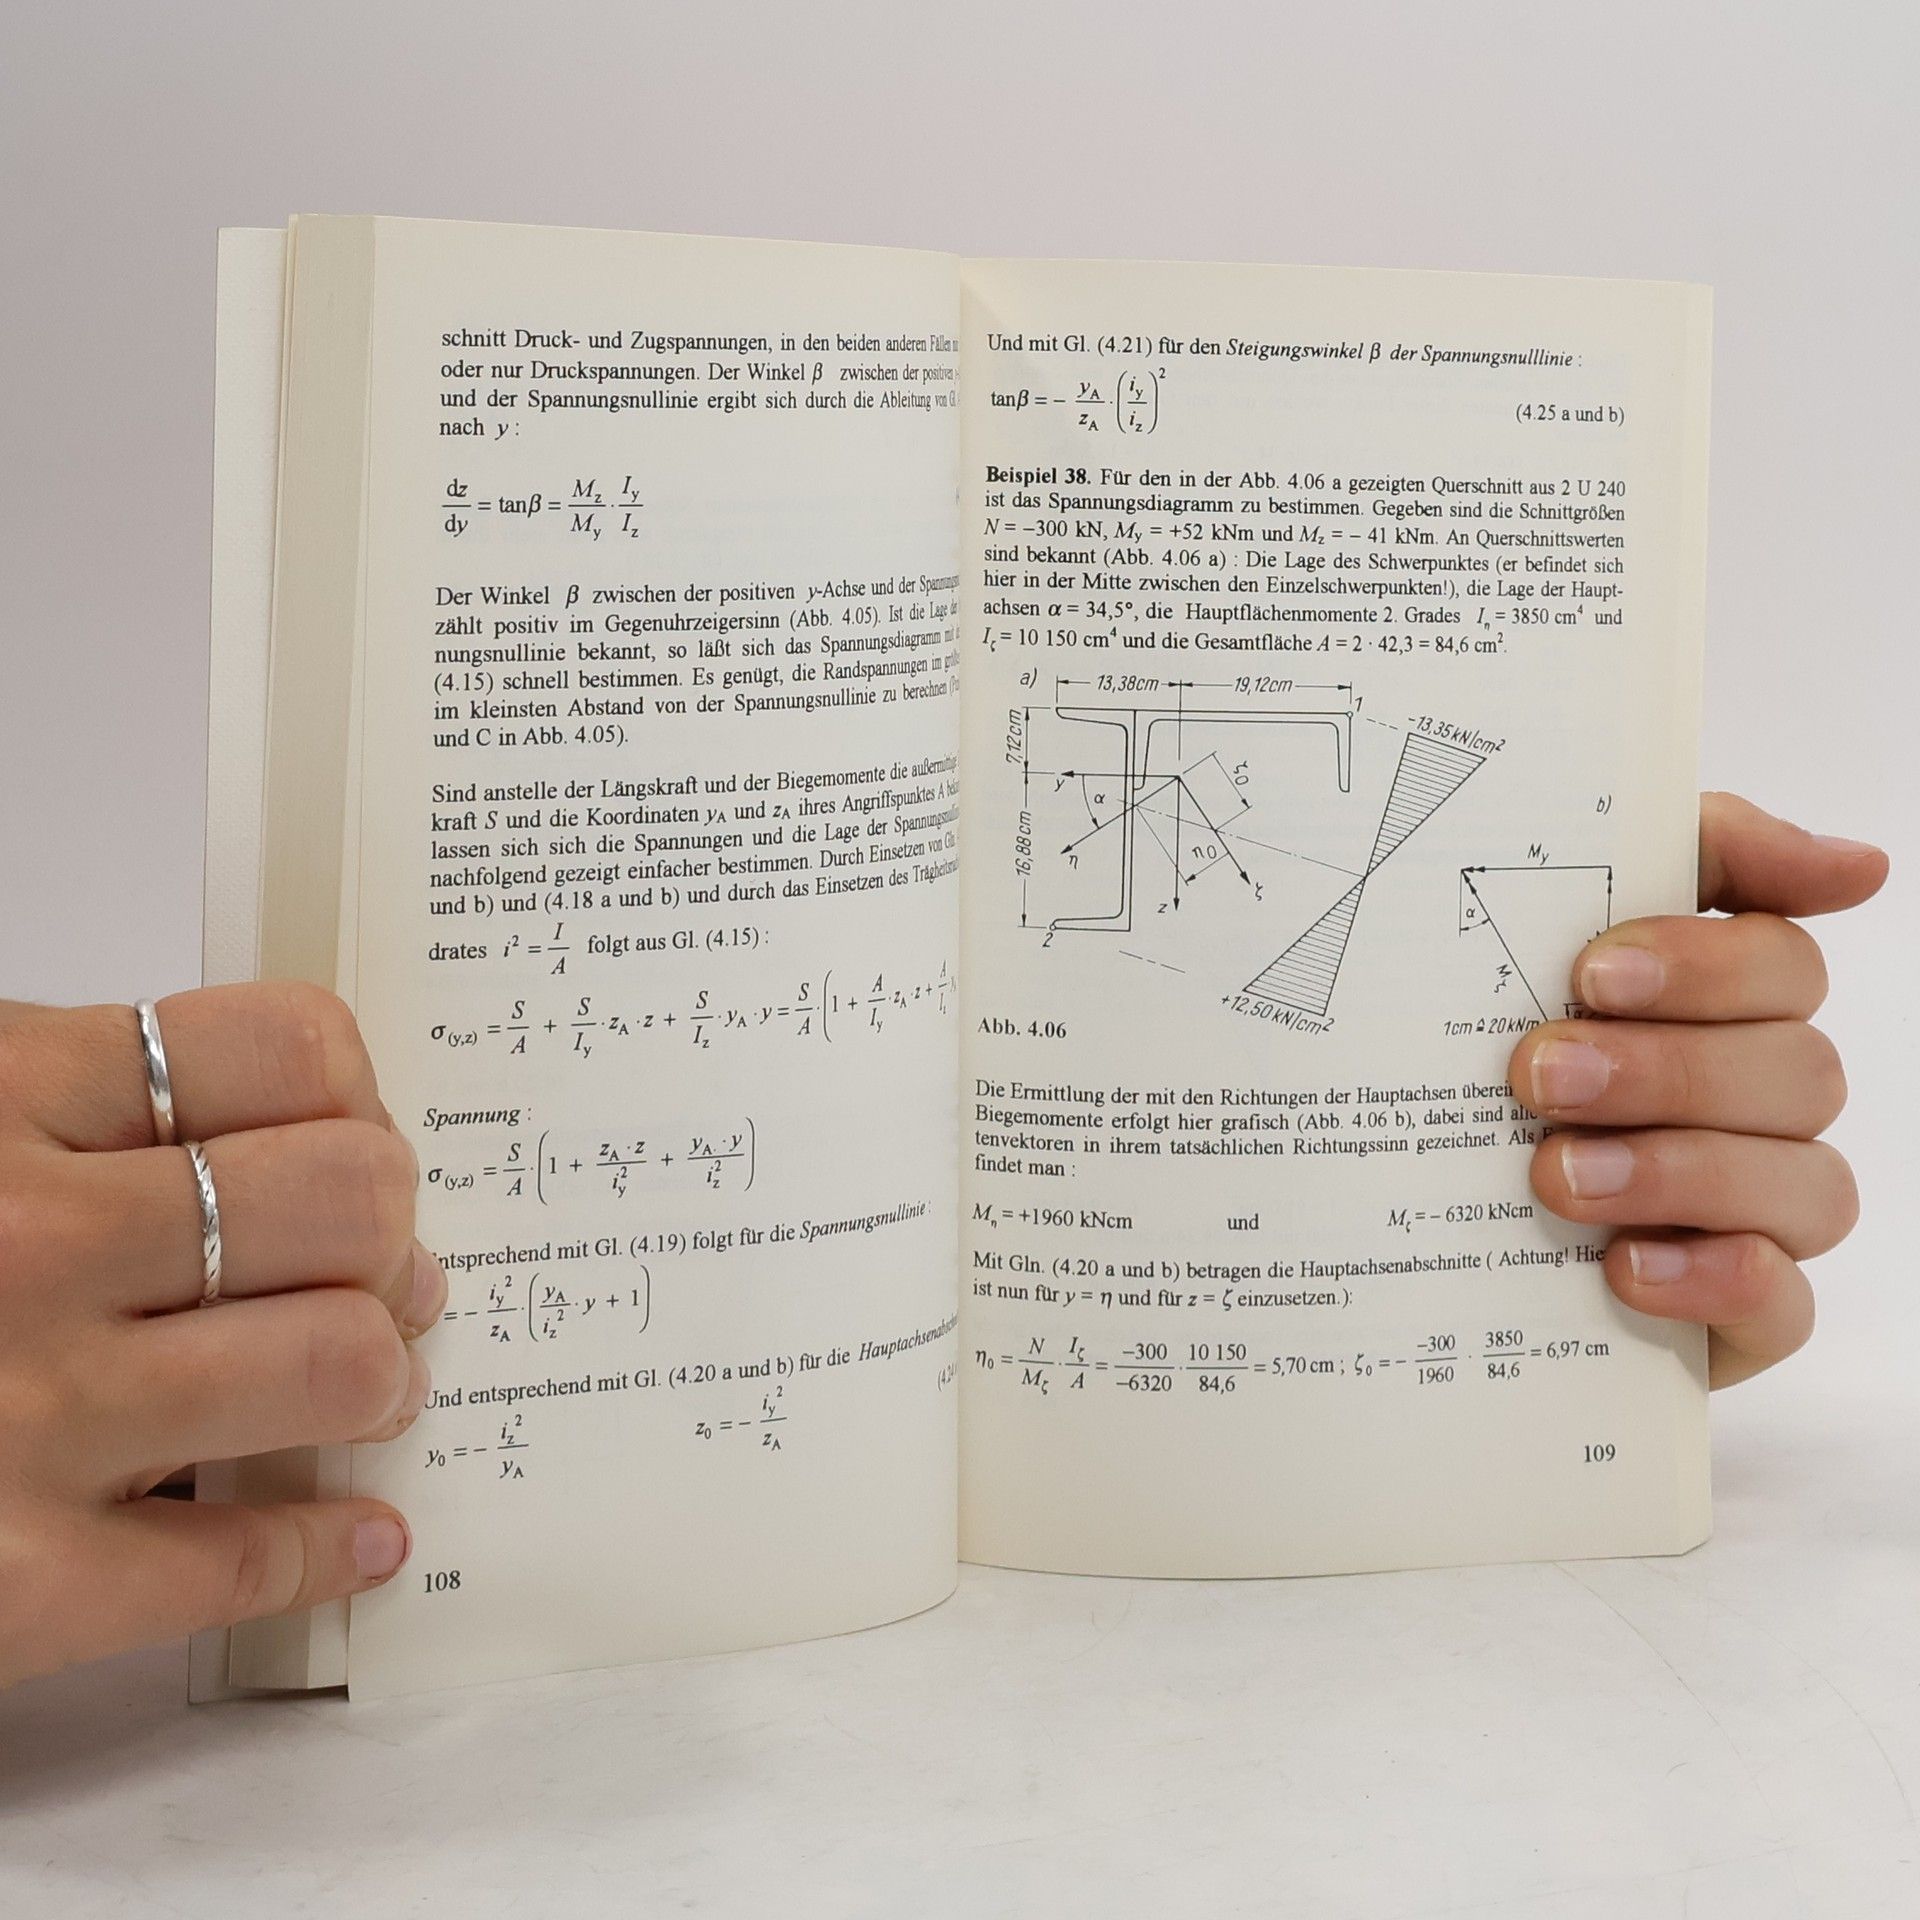 schnitt Druck- und Zugspannungen, in den beiden anderen Fällen
oder nur Druckspannungen. Der Winkel β zwischen der positiven
und der Spannungsnullinie ergibt sich durch die Ableitung von Gl.
nach y :
dz/dy = tanβ = M_z/M_y · I_y/I_z
Der Winkel β zwischen der positiven y-Achse und der
zählt positiv im Gegenuhrzeigersinn (Abb. 4.05). Ist die Lage der
nungsnullinie bekannt, so läßt sich das Spannungsdiagramm mit
(4.15) schnell bestimmen. Es genügt, die Randspannungen im
im kleinsten Abstand von der Spannungsnullinie zu berechnen
und C in Abb. 4.05).
Sind anstelle der Längskraft und der Biegemomente die
kraft S und die Koordinaten y_A und z_A ihres Angriffspunktes A
lassen sich sich die Spannungen und die Lage der
nachfolgend gezeigt einfacher bestimmen. Durch Einsetzen von Gln.
und b) und (4.18 a und b) und durch das Einsetzen des
drates i² = I/A folgt aus Gl. (4.15) :
σ_(y,z) = S/A + S/I_y · z_A · z + S/I_z · y_A · y = S/A · (1 + A/I_y · z_A · z + A/I_z
Spannung :
σ_(y,z) = S/A · (1 + z_A · z/i_y² + y_A · y/i_z²)
ntsprechend mit Gl. (4.19) folgt für die Spannungsnullinie :
= − i_y²/z_A · (y_A/i_z² · y + 1)
Und entsprechend mit Gl. (4.20 a und b) für die
y₀ = − i_z²/y_A z₀ = − i_y²/z_A
108
Und mit Gl. (4.21) für den Steigungswinkel β der Spannungsnulllinie :
tanβ = − y_A/z_A · (i_y/i_z)² (4.25 a und b)
Beispiel 38. Für den in der Abb. 4.06 a gezeigten Querschnitt aus 2 U 240
ist das Spannungsdiagramm zu bestimmen. Gegeben sind die Schnittgrößen
N = −300 kN, M_y = +52 kNm und M_z = − 41 kNm. An Querschnittswerten
sind bekannt (Abb. 4.06 a) : Die Lage des Schwerpunktes (er befindet sich
hier in der Mitte zwischen den Einzelschwerpunkten!), die Lage der Haupt-
achsen α = 34,5°, die Hauptflächenmomente 2. Grades I_η = 3850 cm⁴ und
I_ζ = 10 150 cm⁴ und die Gesamtfläche A = 2 · 42,3 = 84,6 cm².
a) 13,38cm 19,12cm
1
−13,35kN/cm²
7,12cm
16,88cm
y
α
ζ0
η
η0
ζ
z
2
+12,50kN/cm²
b)
M_y
α
M_ζ
1cm ≙ 20kNm
Abb. 4.06
Die Ermittlung der mit den Richtungen der Hauptachsen
Biegemomente erfolgt hier grafisch (Abb. 4.06 b), dabei sind
tenvektoren in ihrem tatsächlichen Richtungssinn gezeichnet. Als
findet man :
M_η = +1960 kNcm und M_ζ = − 6320 kNcm
Mit Gln. (4.20 a und b) betragen die Hauptachsenabschnitte ( Achtung! Hie
ist nun für y = η und für z = ζ einzusetzen.):
η₀ = N/M_ζ · I_ζ/A = −300/−6320 · 10 150/84,6 = 5,70 cm ; ζ₀ = − −300/1960 · 3850/84,6 = 6,97 cm
109